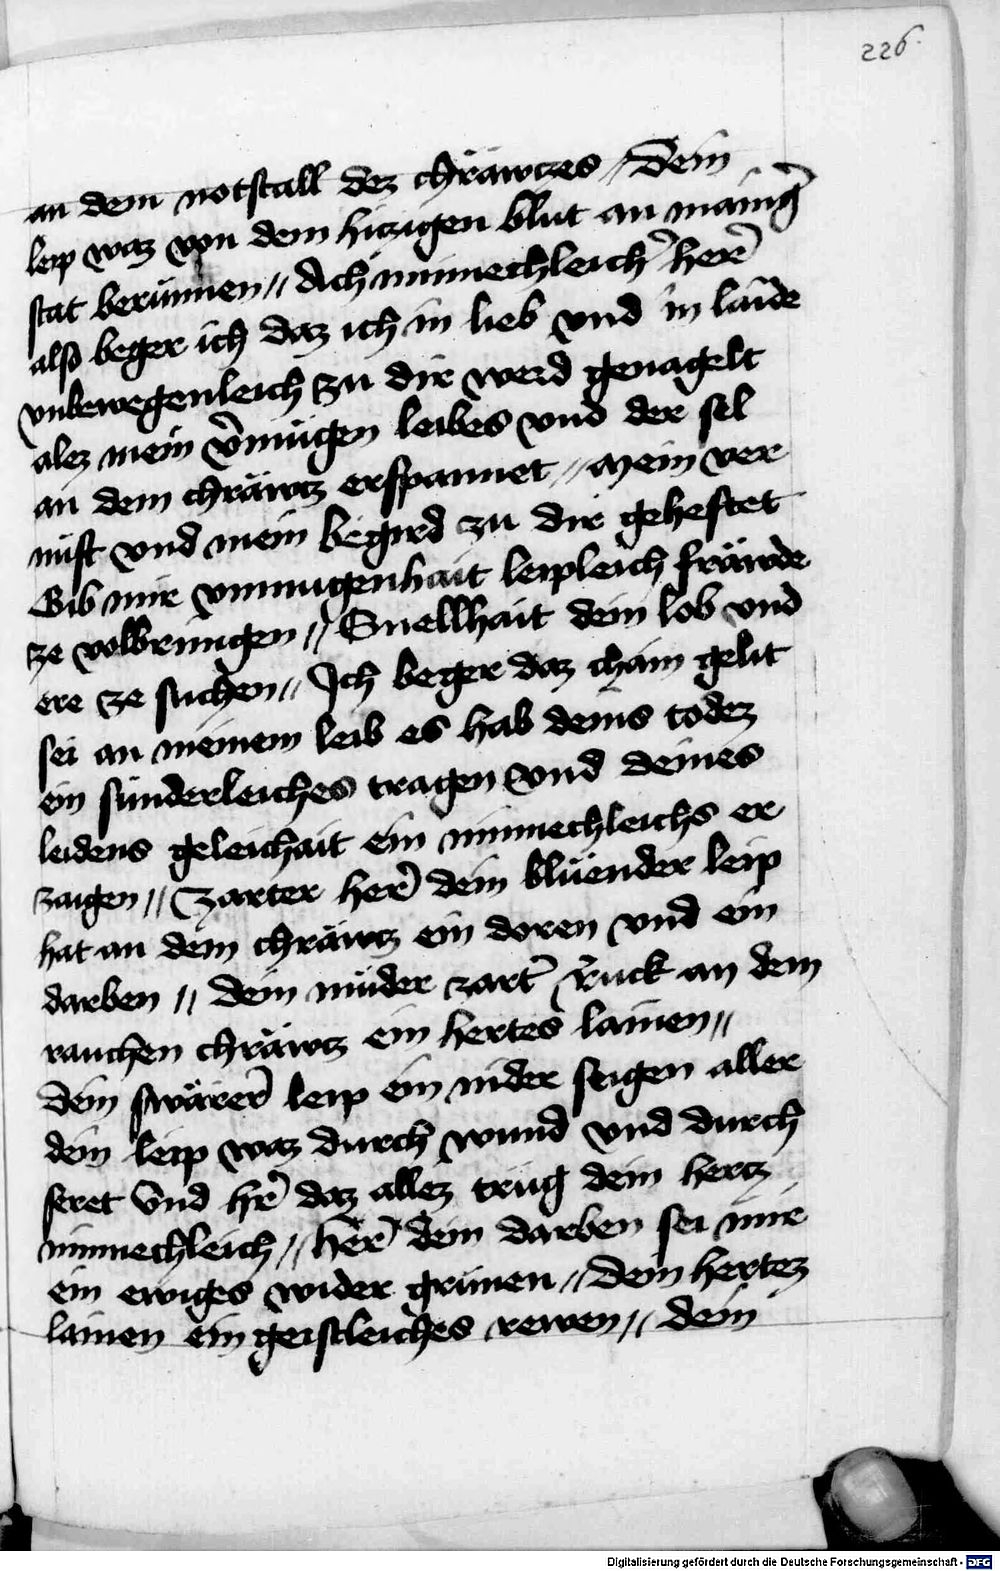 226.
an dem notstall dez chräwczes // Dein
leip waz von dem hiczigen blut an manig̉
stat berunnen // Ach minnechleich̉ her̉
alſo beger ich daz ich in lieb vnd in laide
vnbewegenleich zu dir werd genagelt
alez mein v̉mügen leibes vnd der sel
an dem chräwcz erspannet // Mein ver
nuft vnd mein begird zu dir geheftet
Gib mir vnmugenhait leipleich fräwde
ze volbringen // Snellhait dein lob vnd
ere ze suchen // Ich beger daz chain gelit
sei an meinem leib es hab deins todez
ein sunderleiches tragen vnd deines
leidens geleichait ein minnechleichs er
zaigen // Zarter her̉ dein blüender leip
hat an dem chräwcz ein doren vnd ein
darben // dein müder zart̉ ruck an dem
rauchen chräwcz ein hertes lainen //
Dein swärer̉ leip ein nider seigen aller
dein leip waz durch wund vnd durch
seret Vnd hr̉ daz allez trüg dein hercz
minnechleich // Her̉ dein darben sei mir
ein ewiges wider grünen // Dein hertez
lainen ein geistleiches rewen // dein
Digitalisierung gefördert durch die Deutsche Forschungsgemeinschaft - DFG